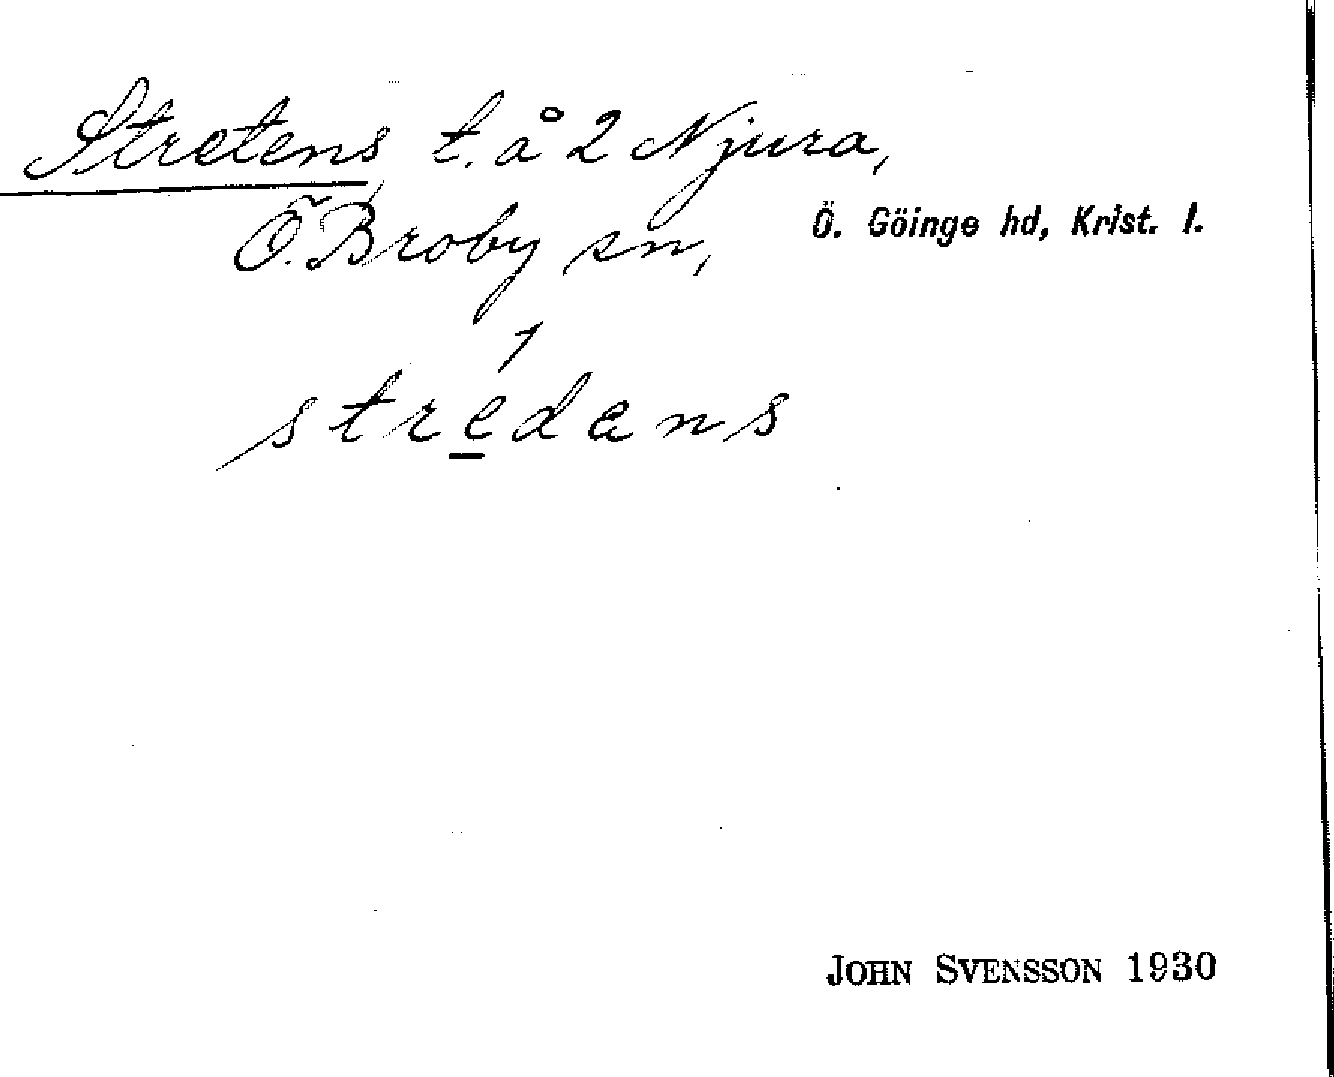 Stretens t. å 2 Njura,
Ö. Broby sn, Ö. Göinge hd, Krist. l.
stre̲´dans
JOHN SVENSSON 1930